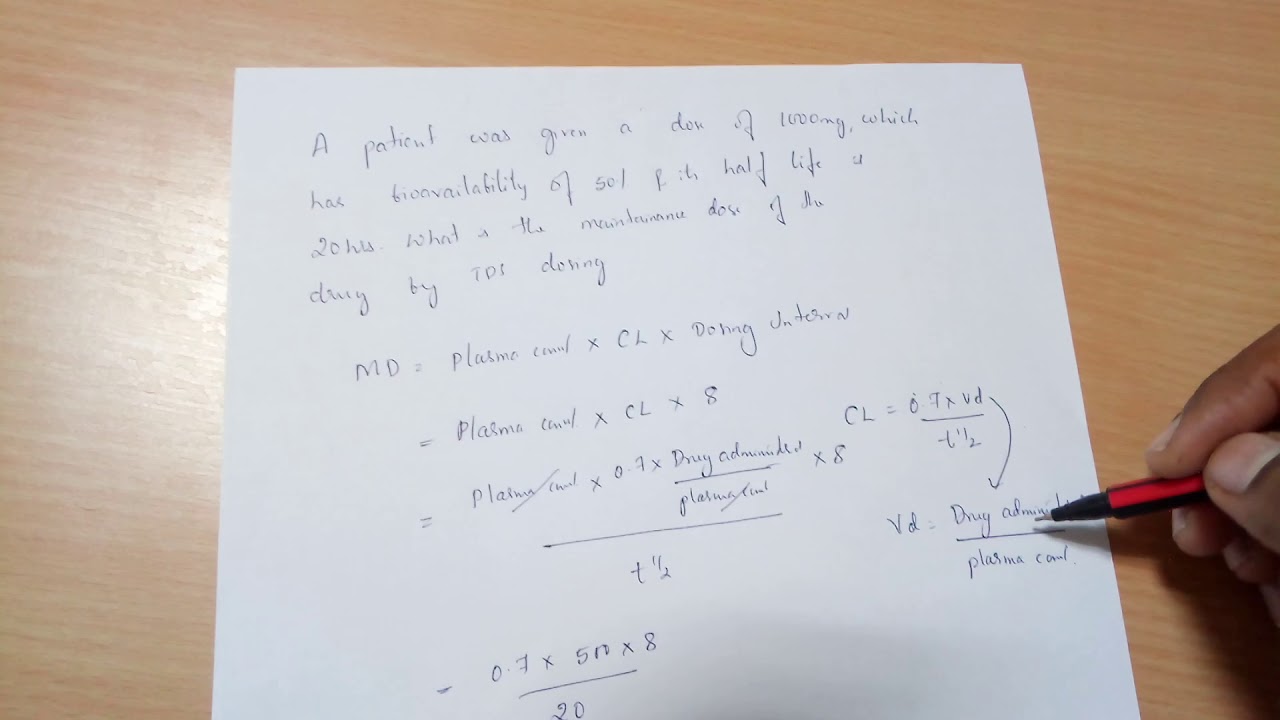 A patient was given a dose of 1000mg, which
has bioavailability of 50% & its half life is
20hrs. What is the maintainance dose of the
drug by TDS dosing
MD = Plasma conc × CL × Dosing Interva
= Plasma conc × CL × 8
CL = 0.7 × Vd / t 1/2
= Plasma conc × 0.7 × Drug administed / plasma conc × 8
t 1/2
Vd = Drug admini / plasma conc.
= 0.7 × 500 × 8
20